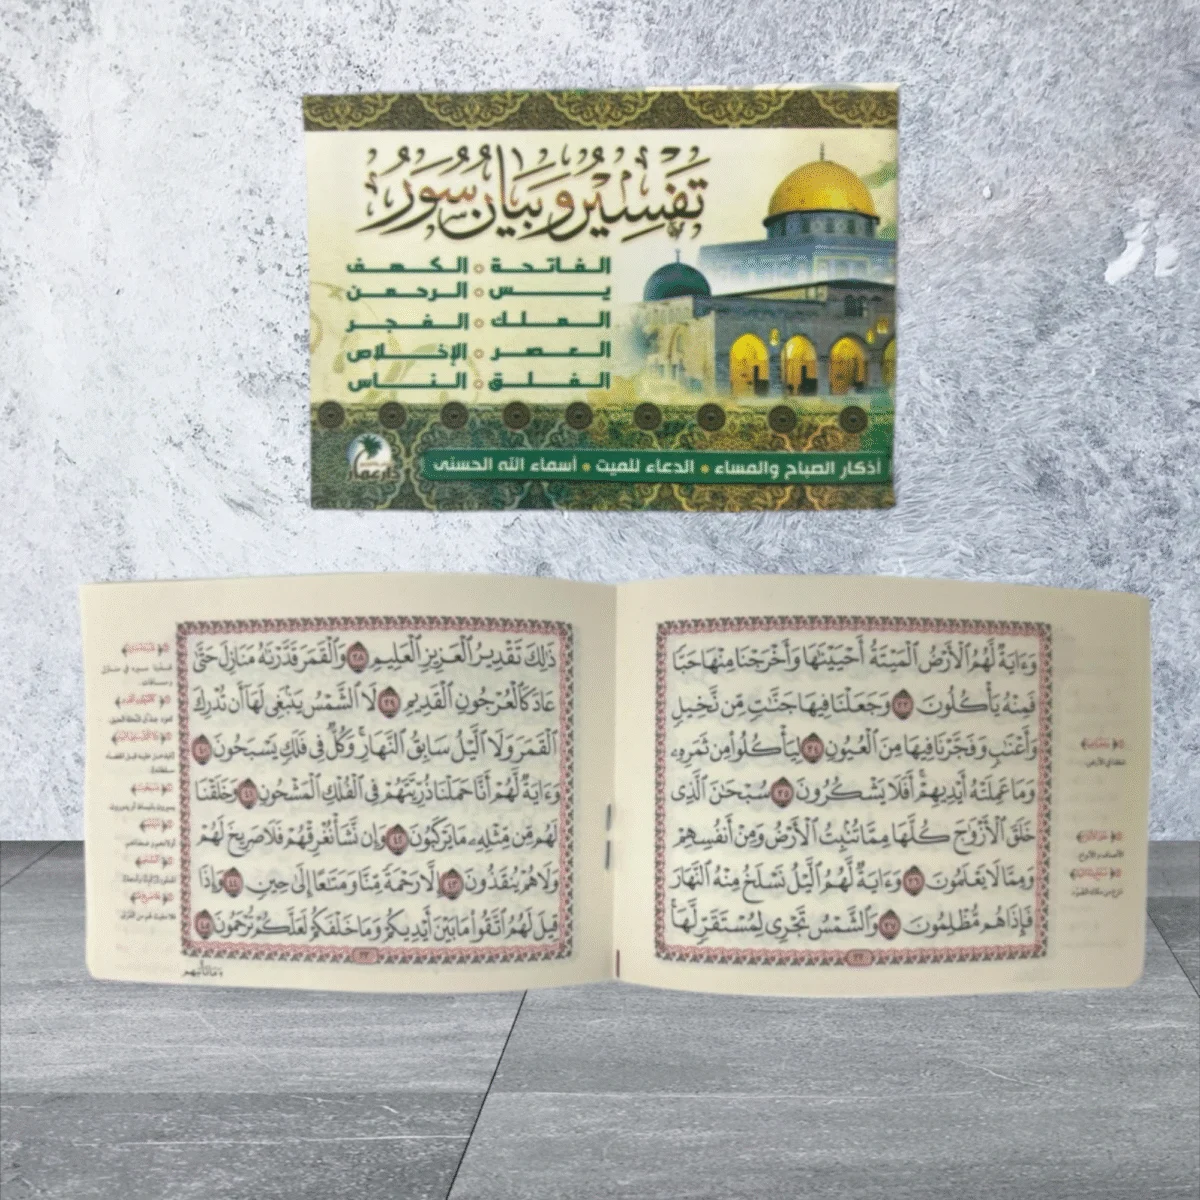 تفسير وبيان سور
الفاتحة • الكهف
يس • الرحمن
الملك • الفجر
العصر • الإخلاص
الفلق • الناس
أذكار الصباح والمساء • الدعاء للميت • أسماء الله الحسنى
دار عمار
وَءَايَةٌ لَّهُمُ ٱلْأَرْضُ ٱلْمَيْتَةُ أَحْيَيْنَٰهَا وَأَخْرَجْنَا مِنْهَا حَبًّا
فَمِنْهُ يَأْكُلُونَ ٣٣ وَجَعَلْنَا فِيهَا جَنَّٰتٍ مِّن نَّخِيلٍ
وَأَعْنَٰبٍ وَفَجَّرْنَا فِيهَا مِنَ ٱلْعُيُونِ ٣٤ لِيَأْكُلُوا۟ مِن ثَمَرِهِۦ
وَمَا عَمِلَتْهُ أَيْدِيهِمْ ۖ أَفَلَا يَشْكُرُونَ ٣٥ سُبْحَٰنَ ٱلَّذِى
خَلَقَ ٱلْأَزْوَٰجَ كُلَّهَا مِمَّا تُنۢبِتُ ٱلْأَرْضُ وَمِنْ أَنفُسِهِمْ
وَمِمَّا لَا يَعْلَمُونَ ٣٦ وَءَايَةٌ لَّهُمُ ٱلَّيْلُ نَسْلَخُ مِنْهُ ٱلنَّهَارَ
فَإِذَا هُم مُّظْلِمُونَ ٣٧ وَٱلشَّمْسُ تَجْرِى لِمُسْتَقَرٍّ لَّهَا ۚ
ذَٰلِكَ تَقْدِيرُ ٱلْعَزِيزِ ٱلْعَلِيمِ ٣٨ وَٱلْقَمَرَ قَدَّرْنَٰهُ مَنَازِلَ حَتَّىٰ
عَادَ كَٱلْعُرْجُونِ ٱلْقَدِيمِ ٣٩ لَا ٱلشَّمْسُ يَنۢبَغِى لَهَآ أَن تُدْرِكَ
ٱلْقَمَرَ وَلَا ٱلَّيْلُ سَابِقُ ٱلنَّهَارِ ۚ وَكُلٌّ فِى فَلَكٍ يَسْبَحُونَ ٤٠
وَءَايَةٌ لَّهُمْ أَنَّا حَمَلْنَا ذُرِّيَّتَهُمْ فِى ٱلْفُلْكِ ٱلْمَشْحُونِ ٤١ وَخَلَقْنَا
لَهُم مِّن مِّثْلِهِۦ مَا يَرْكَبُونَ ٤٢ وَإِن نَّشَأْ نُغْرِقْهُمْ فَلَا صَرِيخَ لَهُمْ
وَلَا هُمْ يُنقَذُونَ ٤٣ إِلَّا رَحْمَةً مِّنَّا وَمَتَٰعًا إِلَىٰ حِينٍ ٤٤ وَإِذَا
قِيلَ لَهُمُ ٱتَّقُوا۟ مَا بَيْنَ أَيْدِيكُمْ وَمَا خَلْفَكُمْ لَعَلَّكُمْ تُرْحَمُونَ ٤٥
وَمَا تَأْتِيهِم